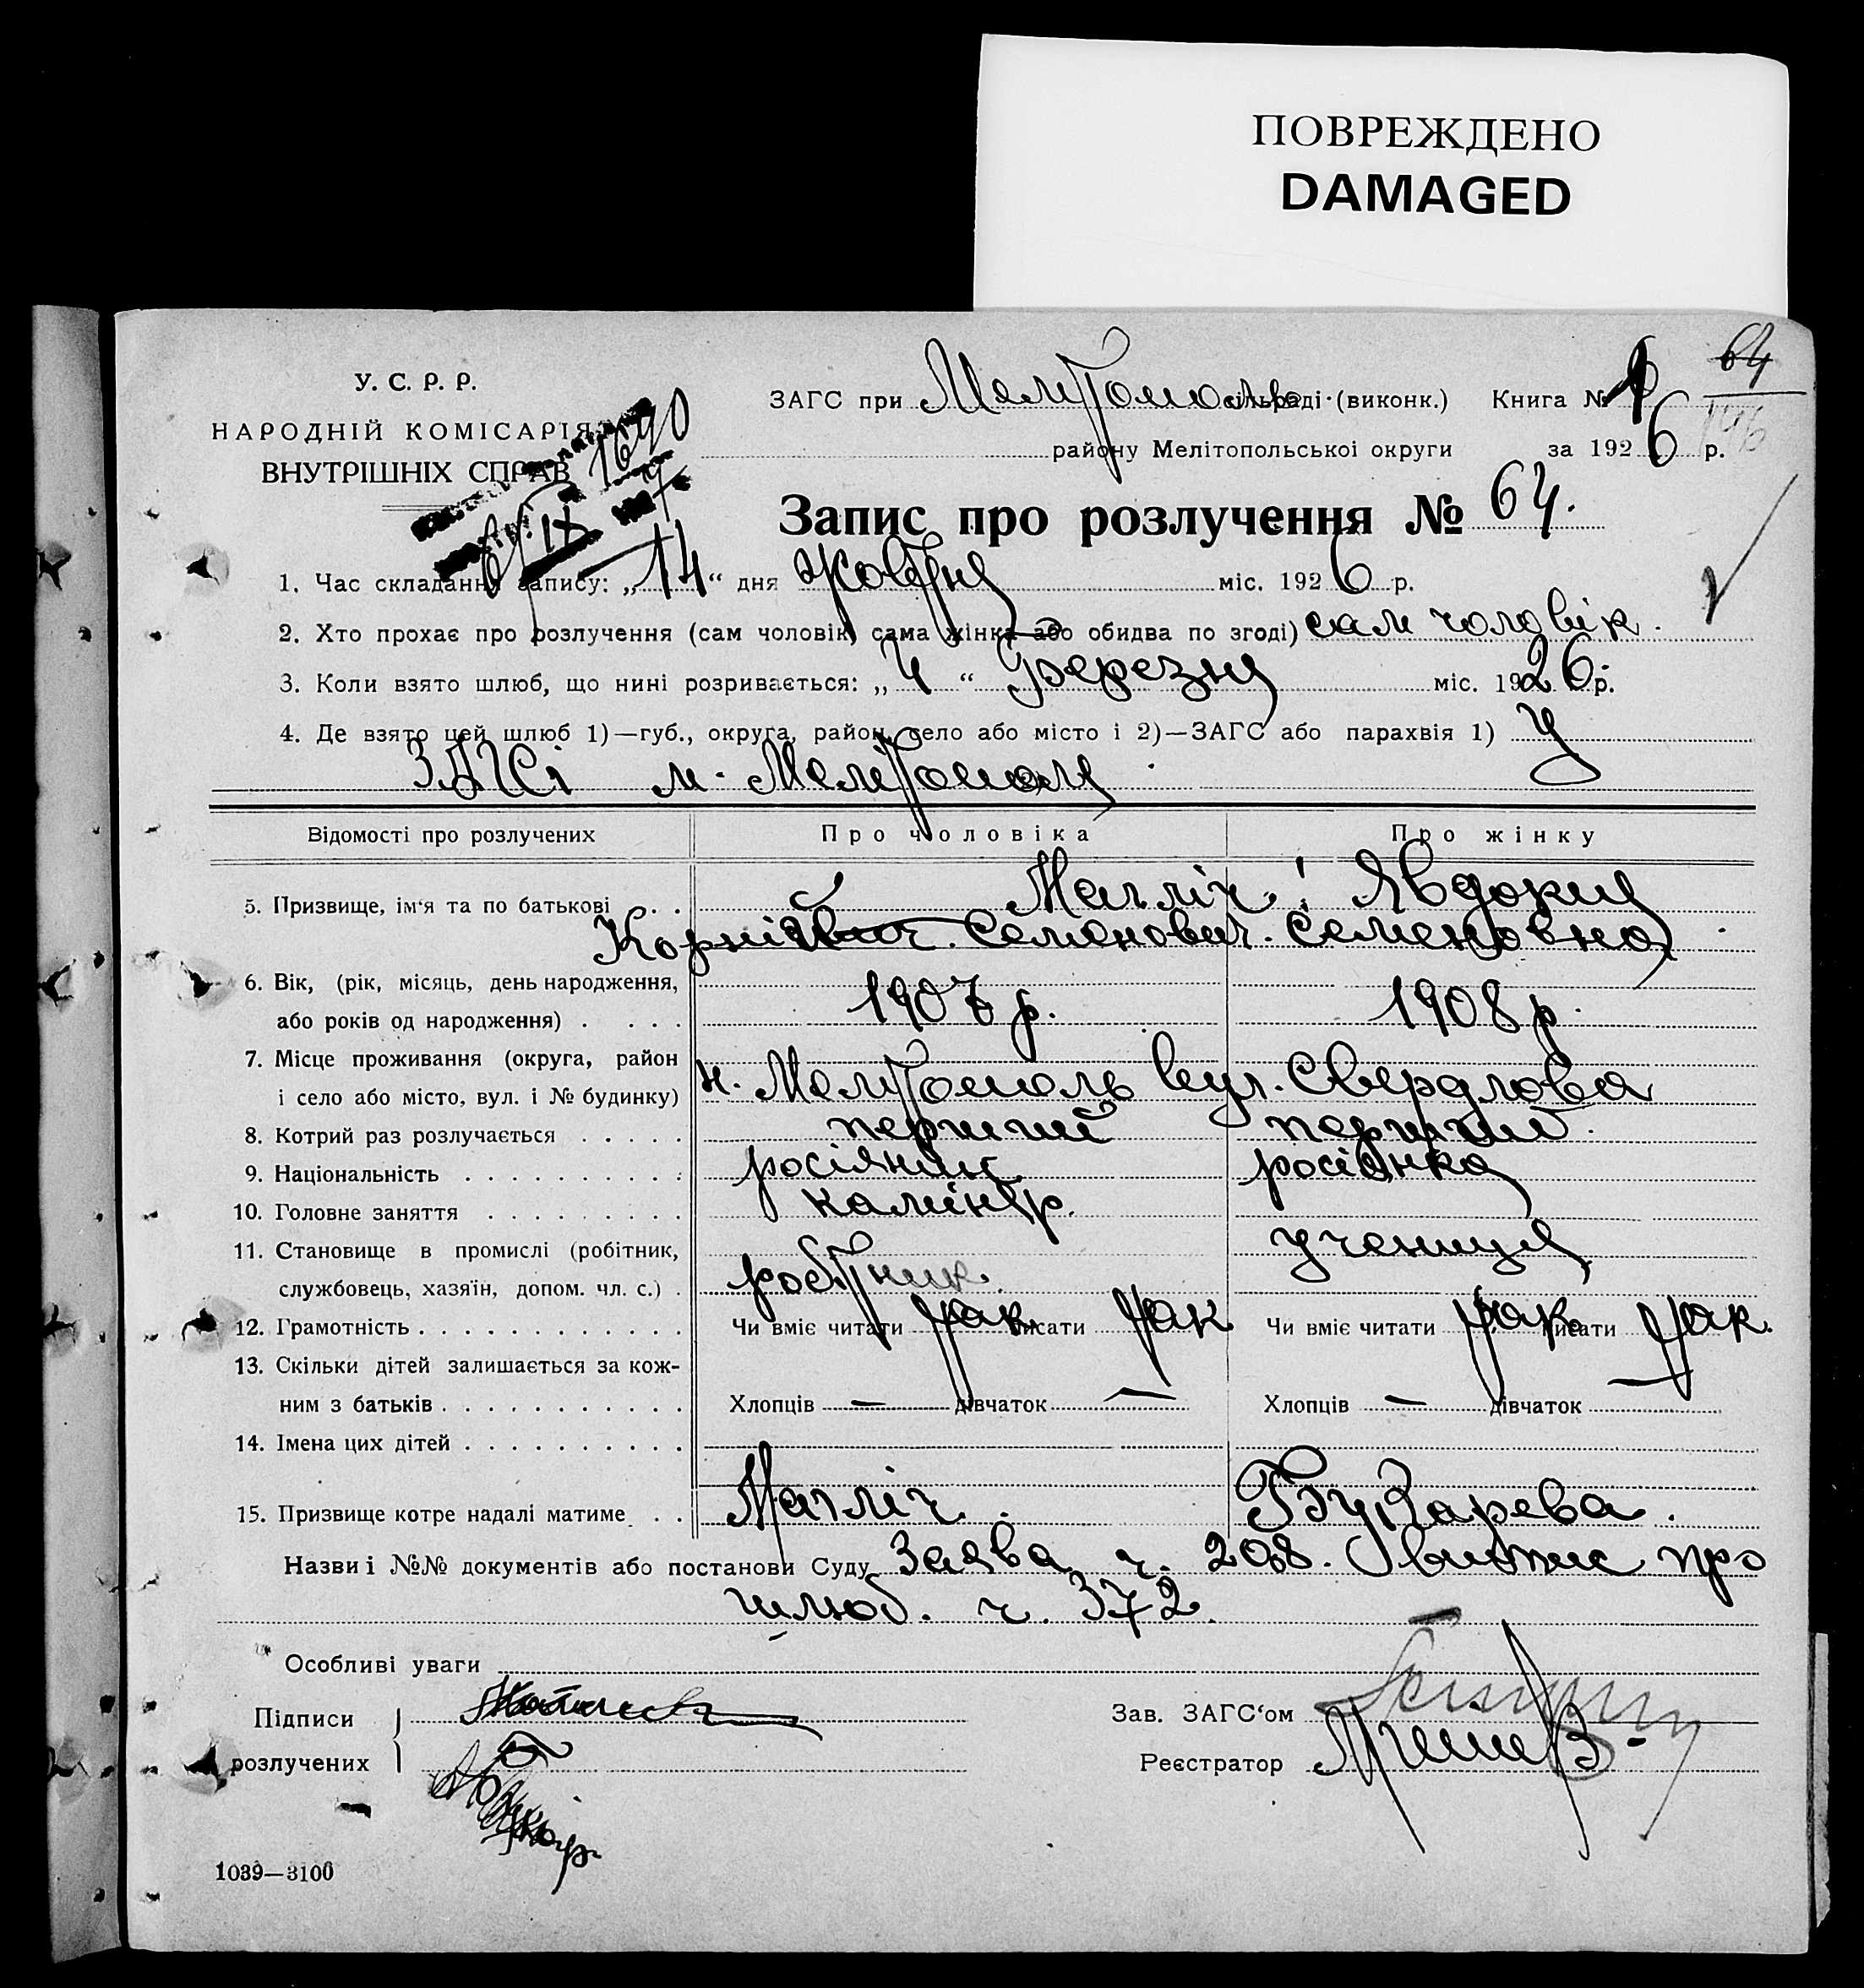 ПОВРЕЖДЕНО
DAMAGED
64
У. С. Р. Р.
НАРОДНІЙ КОМІСАРІЯ
ВНУТРІШНІХ СПРАВ
1690
ЗАГС при Мелітополь сільраді (виконк.) Книга №
району Мелітопольської округи за 1926 р.
Запис про розлучення № 64.
1. Час складання запису: „14“ дня Жовтня міс. 1926 р.
2. Хто прохає про розлучення (сам чоловік, сама жінка або обидва по згоді) сам чоловік.
3. Коли взято шлюб, що нині розривається: „4“ березня міс. 1926 р.
4. Де взято цей шлюб 1)—губ., округа, район, село або місто і 2)—ЗАГС або парахвія 1) У
ЗАГСі м. Мелітополя
Відомості про розлучених Про чоловіка Про жінку
5. Призвище, ім'я та по батькові . . Матліч. Явдокия
Корній Семенович. Семеновна
6. Вік, (рік, місяць, день народження, 1907 р. 1908 р.
або років од народження) . . . .
7. Місце проживання (округа, район
і село або місто, вул. і № будинку) м. Мелітополь вул. Свердлова
8. Котрий раз розлучається . . . . . перший перший.
9. Національність . . . . . . . . . . росіянин росіянка
10. Головне заняття . . . . . . . . . каміняр.
11. Становище в промислі (робітник, учениця
службовець, хазяїн, допом. чл. с.) . робітник.
12. Грамотність . . . . . . . . . . . . Чи вміє читати так писати так Чи вміє читати так писати так.
13. Скільки дітей залишається за кож-
ним з батьків . . . . . . . . . . . Хлопців — дівчаток — Хлопців — дівчаток —
14. Імена цих дітей . . . . . . . . . .
15. Призвище котре надалі матиме . . Матліч. Бухарева.
Назви і №№ документів або постанови Суду Заява ч. 208. витпис про
шлюб. ч. 372.
Особливі уваги
Підписи
розлучених
Зав. ЗАГС'ом
Реєстратор
1039—3100